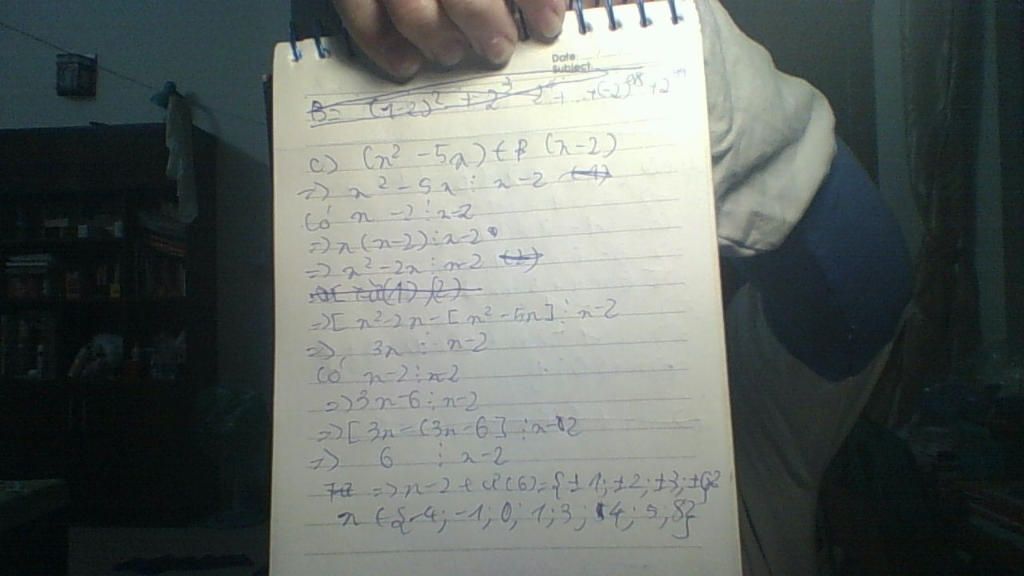 Date
Subject
B = (+2)² + 2³ 2⁴ + ... + (-2)⁹⁸ + 2⁹⁹
c) (x² - 5x) ∈ B (x-2)
=> x² - 5x ⋮ x-2 (1)
Có x - 2 ⋮ x-2
=> x(x-2) ⋮ x-2
=> x² - 2x ⋮ x-2 (2)
(1) (2)
=> [x² - 2x - [x² - 5x] ⋮ x-2
=> 3x ⋮ x-2
Có x-2 ⋮ x-2
=> 3x-6 ⋮ x-2
=> [3x - (3x-6] ⋮ x-2
=> 6 ⋮ x-2
=> x-2 ∈ Ư(6) = {±1; ±2; ±3; ±6}
x ∈ {-4; -1; 0; 1; 3; 4; 5; 8}